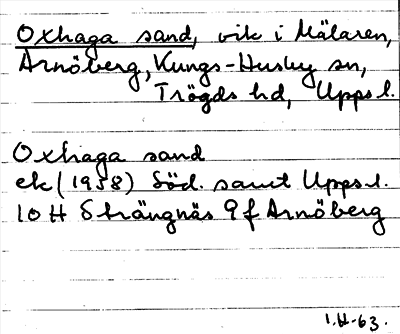 Oxhaga sand, vik i Mälaren,
Arnöberg, Kungs-Husby sn,
Trögds hd, Upps l.
Oxhaga sand
ek (1958) Söd. samt Upps. l.
10 H Strängnäs 9 f Arnöberg
1.H-63.